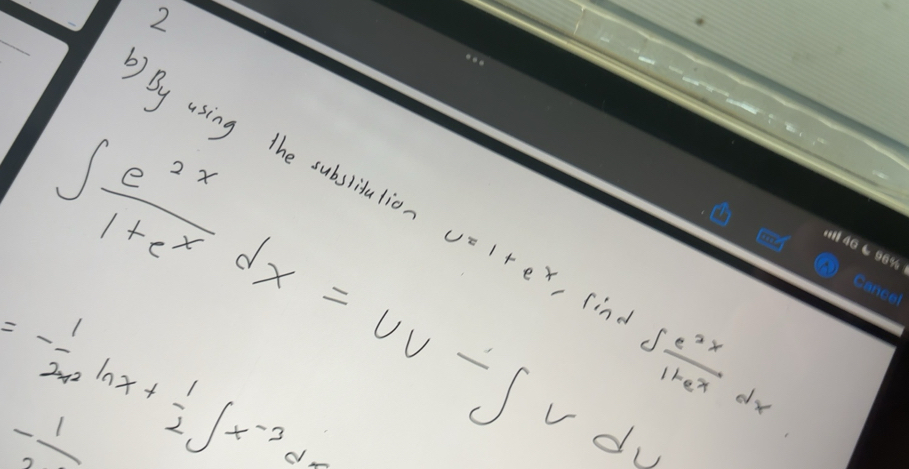 2
b) By using the substitution u = 1 + e^x, find ∫ e^2x / 1+e^x dx.
∫ e^2x / 1+e^x dx = UV - ∫ v du
= -1/2x^2 ln x + 1/2 ∫ x^-3 dx
-1/
4G 96%
Cancel